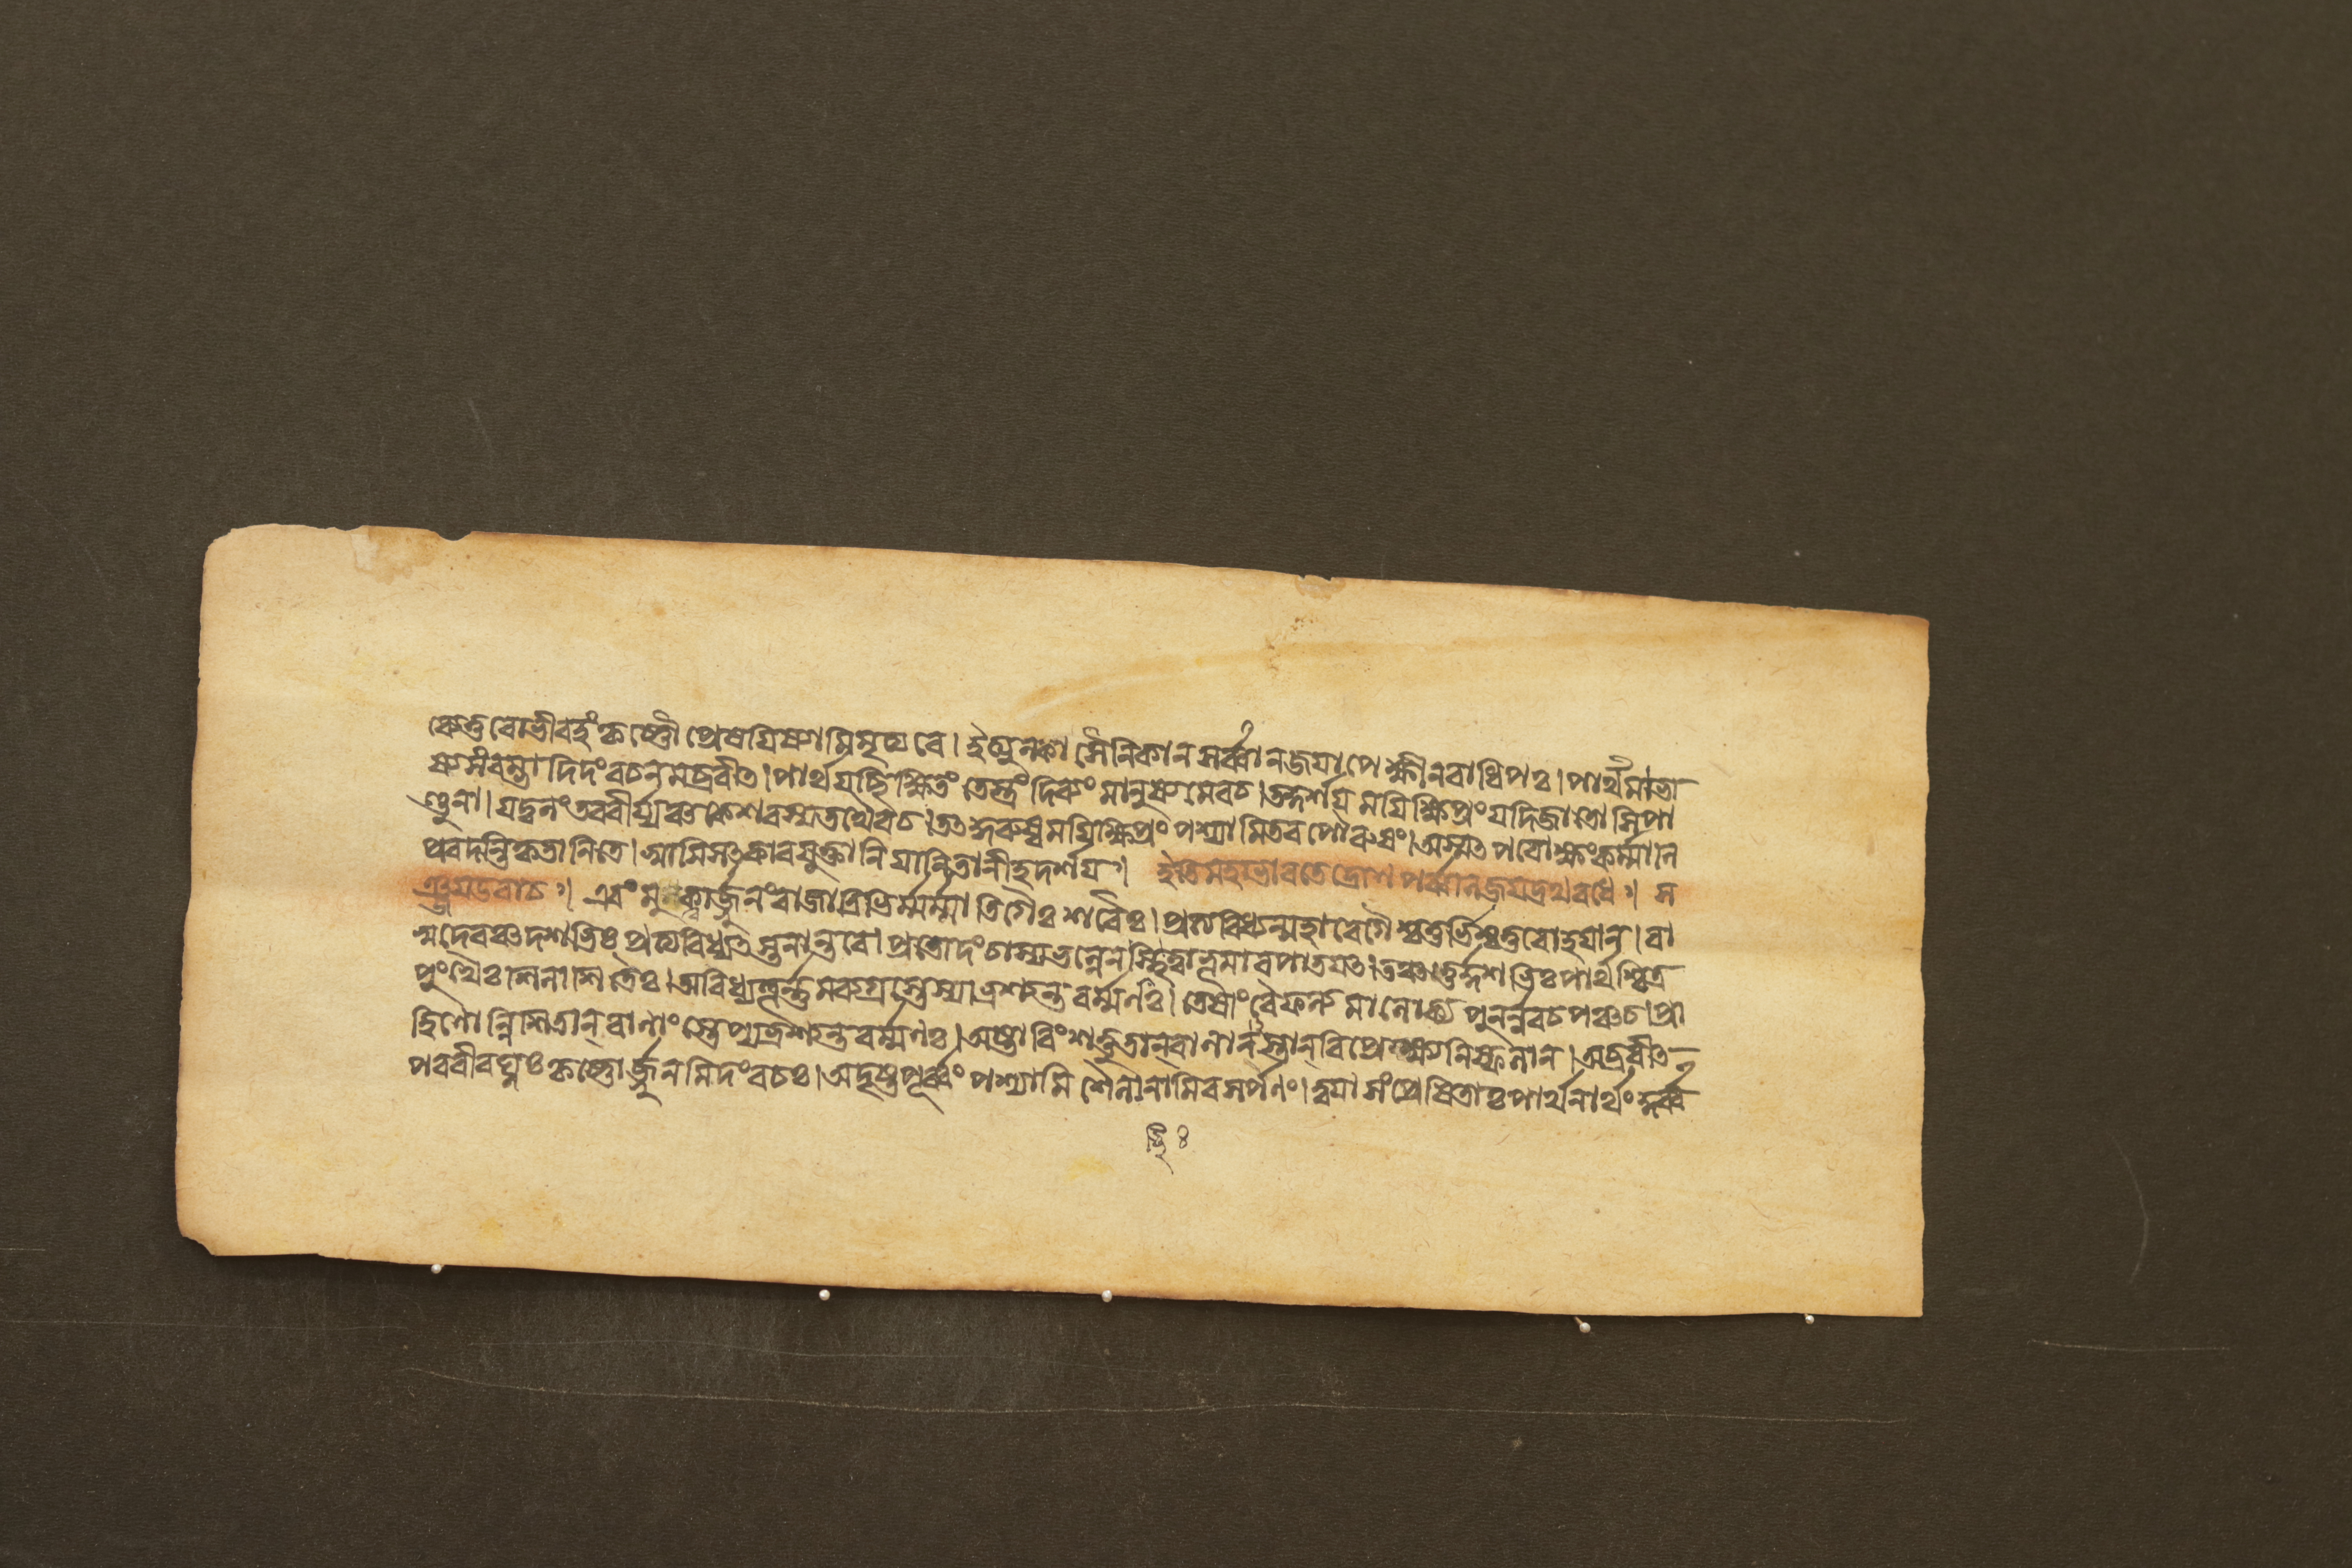 ব্যেতু বোভীবহং কৃষ্ণৌ প্রেষযিষ্যামিমৃত্যবে। ইত্যুক্ত্বা সৈনিকান সর্ব্বান জযাপেক্ষীনরাধিপঃ। পার্থমাভা
ষ্যসংরম্ভাদিদং বচনমব্রবীত। পার্থযচ্ছিক্ষিতং তেস্ত্রং দিব্যং মানুষ্যমেবচ। তদ্দর্শয মযিক্ষিপ্রং যদিজাতোসিপা
ণ্ডুনা। যদ্বলং তববীর্য্যঞ্চ কেশবস্যতথৈবচ। তৎকুরুষ্বমযিক্ষিপ্রং পশ্যামিতব পৌরুষং। অস্মৎপরোক্ষংকর্ম্মানি
প্রবদন্তিকৃতানিতে। স্বামিসৎকারযুক্তানি যানিতানীহদর্শয॥ ইতিমহাভারতেদ্রোণপর্ব্বণিজযদ্রথবধে॥ স
ঞ্জযউবাচ॥ এবমুক্ত্বার্জ্জুনংরাজাত্রিভির্ম্মর্ম্মাতিগৈঃশরৈঃ। প্রত্যবিধ্যন্মহাবেগৈশ্চতুর্ভিশ্চতুরোহযান্। বা
সুদেবঞ্চদশভিঃ প্রত্যবিধ্যৎস্তনান্তরে। প্রতোদংচাস্যভল্লেনচ্ছিত্বাভূমাবপাতযৎ। তঞ্চতুর্দ্দশভিঃপার্থশ্চিত্র
পুংখৈঃশিলাশিতৈঃ। অবিধ্যত্তূর্ন্নমব্যগ্রস্তেস্যাভ্রশ্যন্তবর্ম্মণঃ। তেষাংবৈফল্যমালোক্য পুনর্ন্নবচপঞ্চচ। প্রা
হিণোন্নিশিতান্বাণাংস্তেপ্যভ্রশ্যন্তবর্ম্মণঃ। অষ্টাবিংশত্তুতান্বাণানস্তান্বিপ্রেক্ষ্যনিষ্ফলান। অব্রবীৎ
পরবীরঘ্নঃকৃষ্ণোর্জ্জুনমিদংবচঃ। অদৃষ্টপূর্ব্বংপশ্যামি শিলানামিবসর্পণং। ত্বযাসংপ্রেষিতাঃপার্থনার্থংকুর্ব্ব